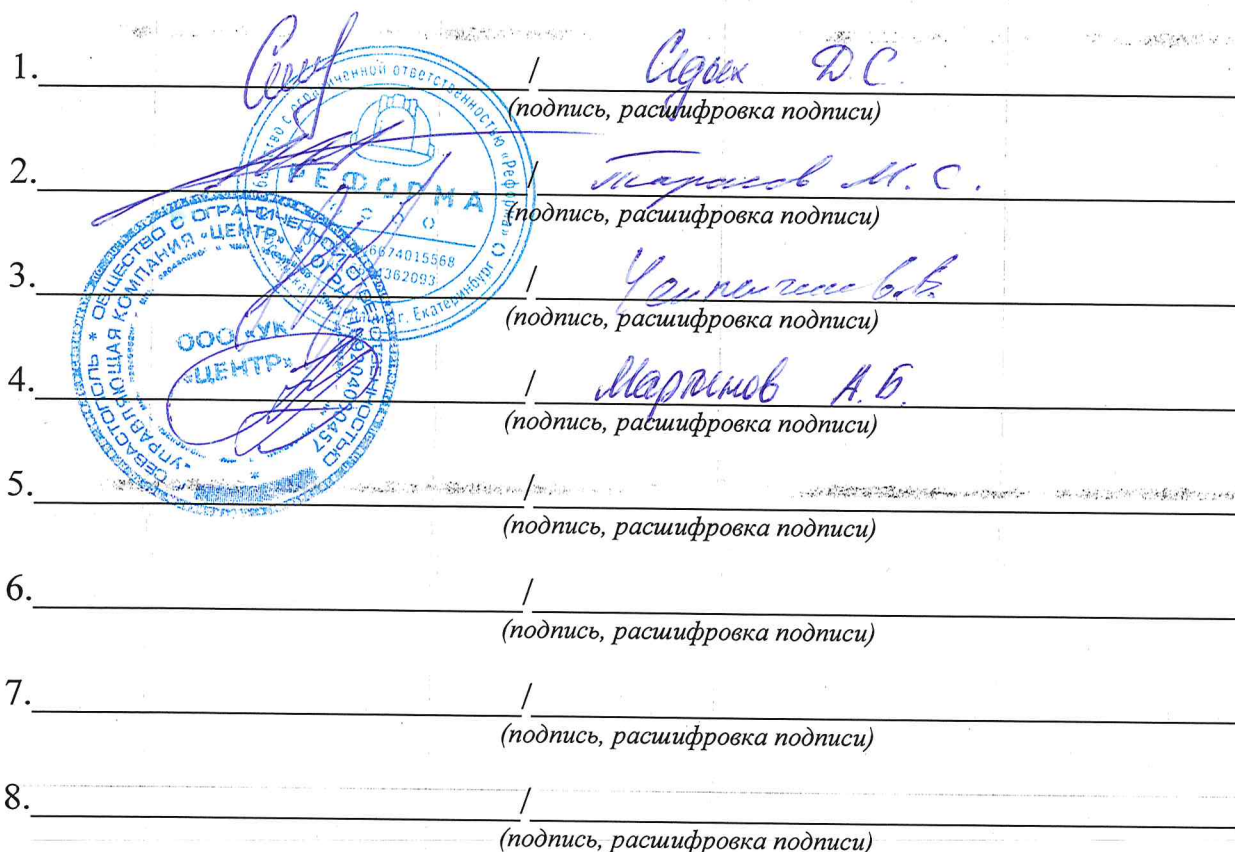 1. / Д.С.
(подпись, расшифровка подписи)
2. / Тарасов М.С.
(подпись, расшифровка подписи)
3. /
(подпись, расшифровка подписи)
4. / Мартынов А.Б.
(подпись, расшифровка подписи)
5. /
(подпись, расшифровка подписи)
6. /
(подпись, расшифровка подписи)
7. /
(подпись, расшифровка подписи)
8. /
(подпись, расшифровка подписи)
ограниченной ответственностью «Реформа»
г. Екатеринбург
РЕФОРМА
ООО
6674015568
4362093
СЕВАСТОПОЛЬ * ОБЩЕСТВО С ОГРАНИЧЕННОЙ ОТВЕТСТВЕННОСТЬЮ
«УПРАВЛЯЮЩАЯ КОМПАНИЯ «ЦЕНТР» * ОГРН
ООО «УК
«ЦЕНТР»